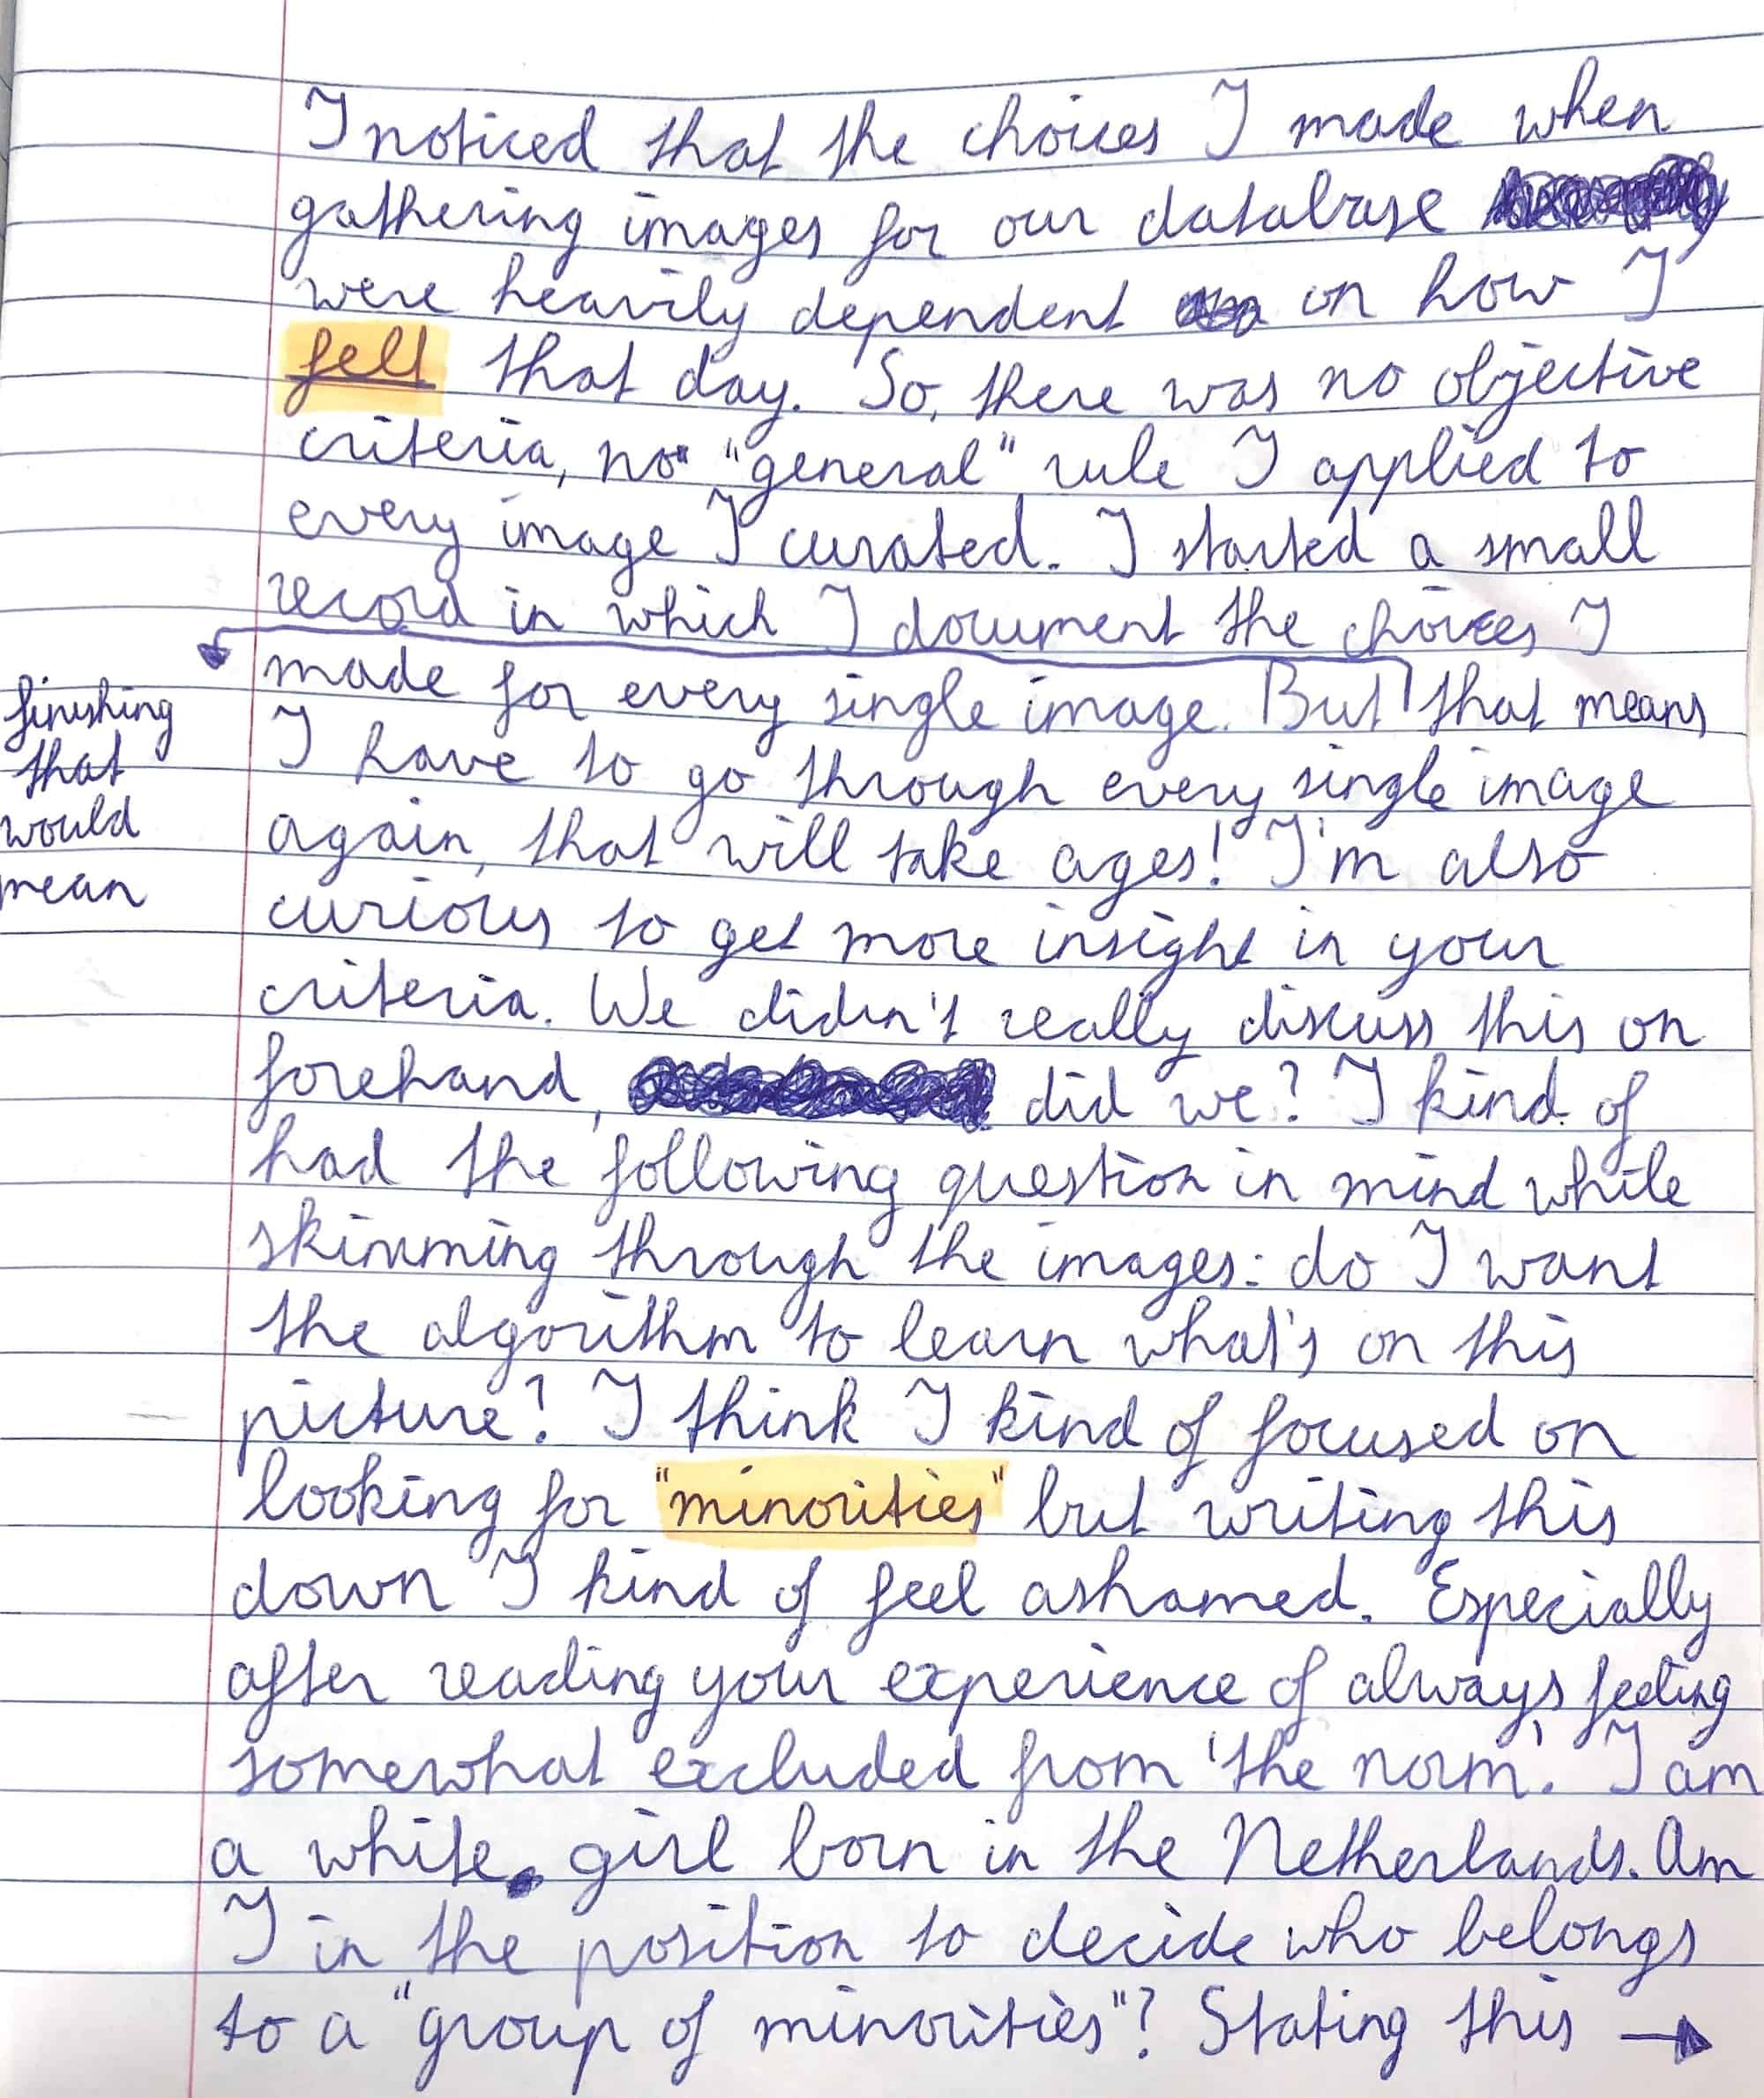 I noticed that the choices I made when
gathering images for our database
were heavily dependent on how I
felt that day. So, there was no objective
criteria, no "general" rule I applied to
every image I curated. I started a small
record in which I document the choices I
made for every single image. But that means
finishing
that
would
mean
I have to go through every single image
again, that will take ages! I'm also
curious to get more insight in your
criteria. We didn't really discuss this on
forehand, did we? I kind of
had the following question in mind while
skimming through the images: do I want
the algorithm to learn what's on this
picture? I think I kind of focused on
looking for "minorities" but writing this
down I kind of feel ashamed. Especially
after reading your experience of always feeling
somewhat excluded from 'the norm'. I am
a white girl born in the Netherlands. Am
I in the position to decide who belongs
to a "group of minorities"? Stating this →